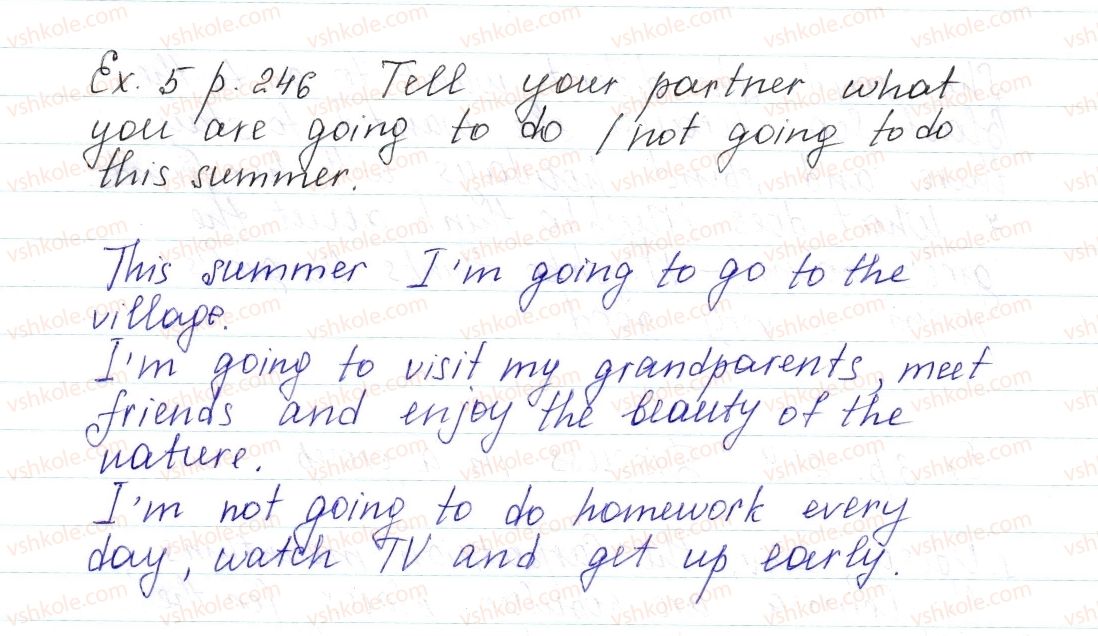 Ex. 5 p. 246 Tell your partner what
you are going to do / not going to do
this summer.
This summer I'm going to go to the
village.
I'm going to visit my grandparents, meet
friends and enjoy the beauty of the
nature.
I'm not going to do homework every
day, watch TV and get up early.
vshkole.com